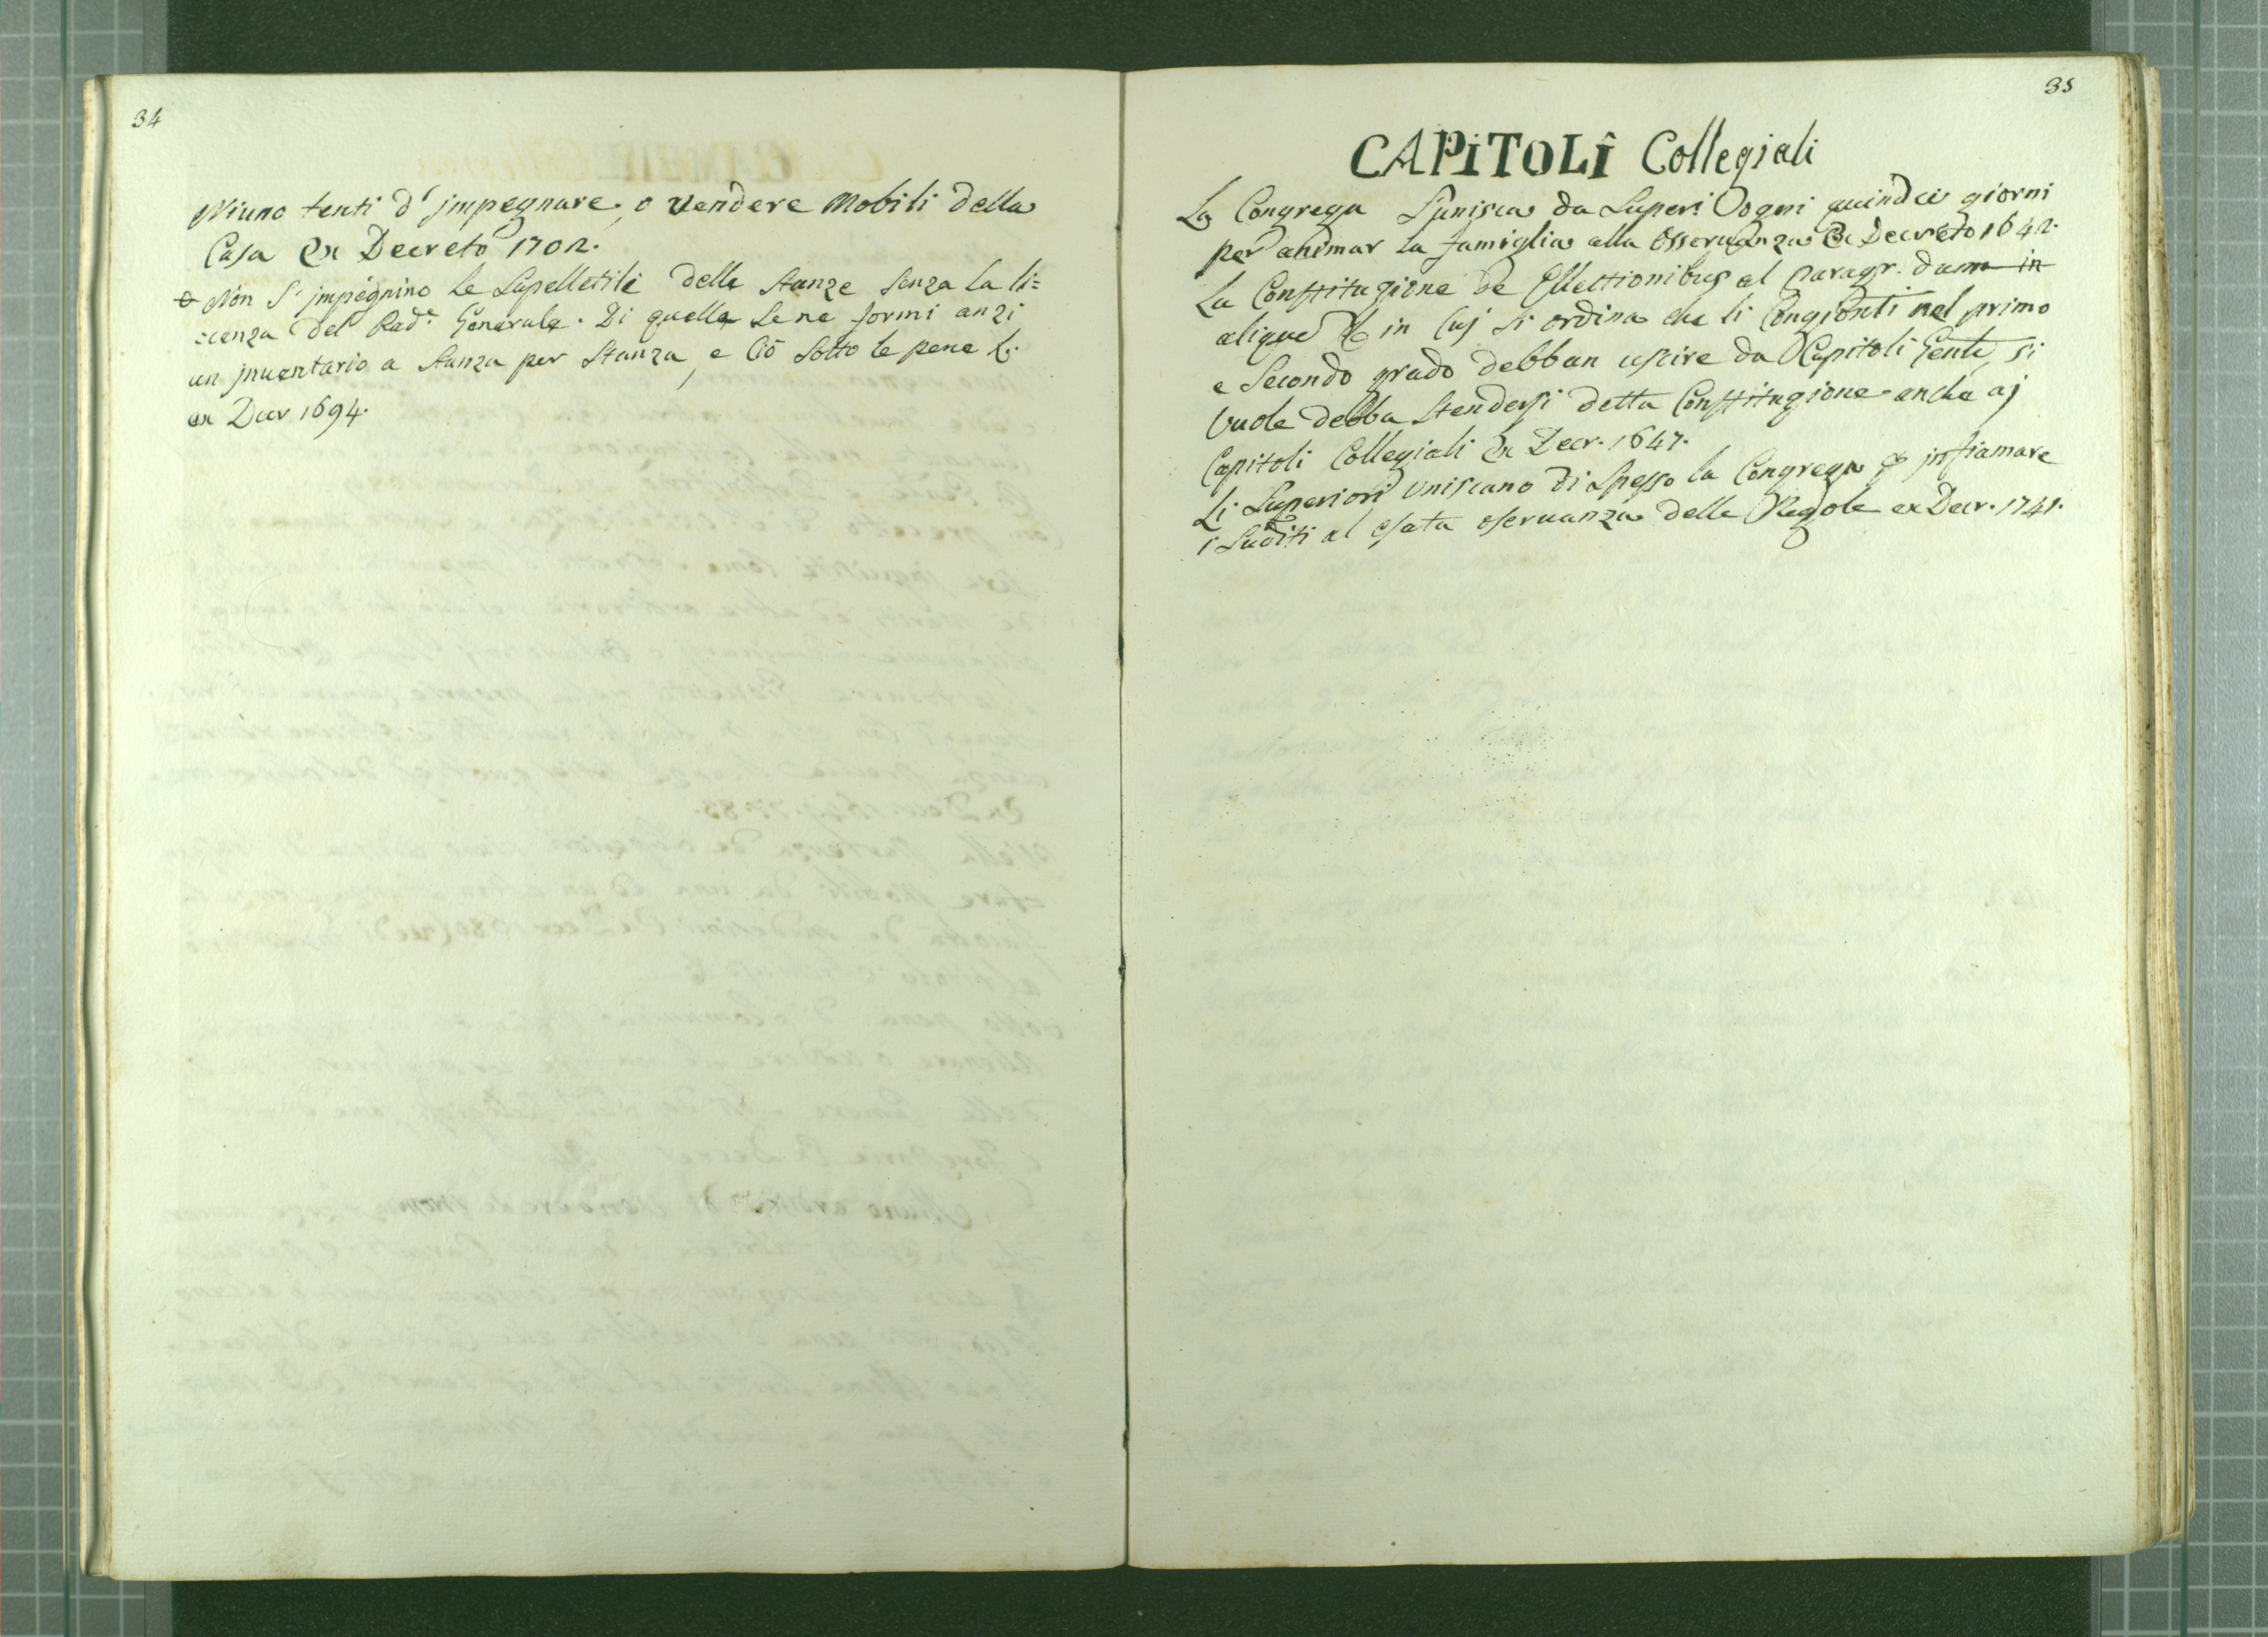 34
Niuno tenti d' jmpegnare, o vendere Mobili della
Casa Ex Decreto 1702.
e Non S' jmpegnino le Supelletili delle Stanze Senza la li=
:cenza Del Pad.e Generale. Di quelle Se ne formi anzi
un jnuentario a Stanza per Stanza, e Ciò Sotto le pene &.
ex Decr 1694.
35
CAPiTOLî Collegiali
La Congrega S'unisca da Superi ogni quindici giorni
per animar la famiglia alla Osseruanza Ex Decreto 1642.
La Constituzione de Ellettionibus al paragr. dum in
alique & in Cuj si ordina che li Congionti nel primo
e Secondo grado debban uscire da Capitoli Genli, si
Vuole debba Stendersi detta Constituzione anche aj
Capitoli Collegiali Ex Decr. 1647.
Li Superiori Uniscano di Spesso la Congrega jnfiamare
i Suditi al esata oseruanza delle Regole ex Decr. 1741.